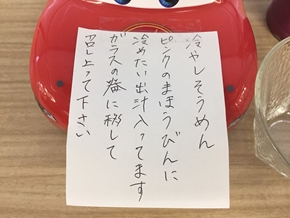 冷やしそうめん
ピンクのまほうびんに
冷めたい出汁入ってます
ガラスの器に移して
召し上って下さい